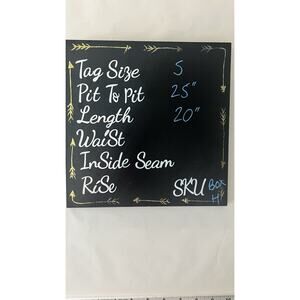 Tag Size S
Pit To Pit 25"
Length 20"
WaiSt
InSide Seam
RiSe SKU BOX
H